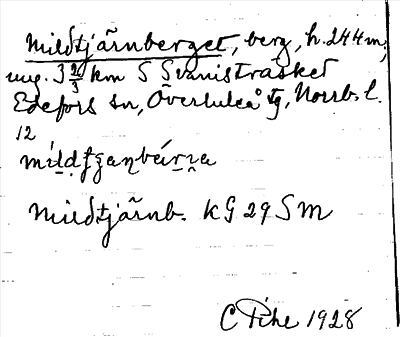 Mildtjärnberget, berg, h. 244 m,
ung. 3 2/3 km S Svanisträsket
Edefors sn, Överluleå tg, Norrb. l.
12
Mildtjärnb. KG 29 SM
C Pihe 1928